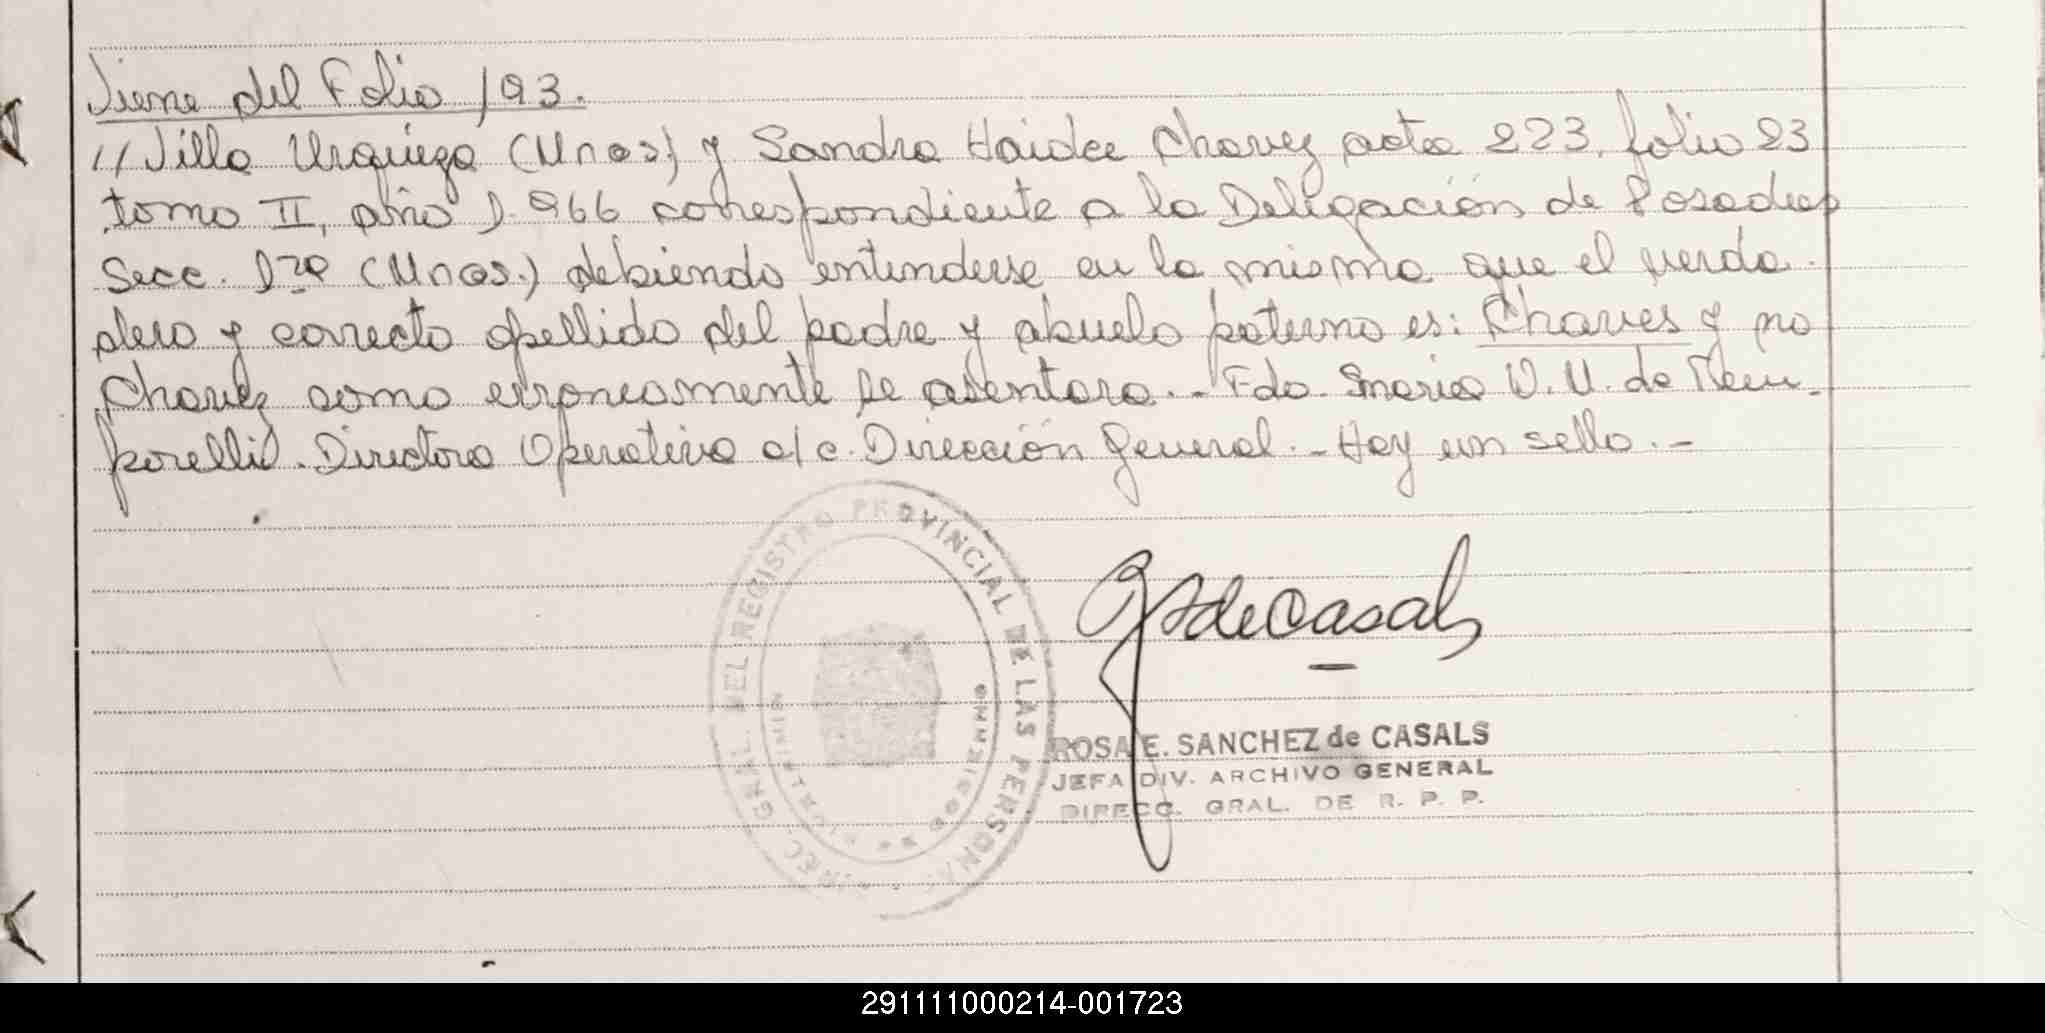 Viene del Folio 193.
// Villa Urquiza (Mnes) y Sandra Haidee Chavez acta 223, folio 23
tomo II, año 1.966 correspondiente a la Delegación de Posadas
Secc. 1ra (Mnes.) debiendo entenderse en la misma que el verda-
dero y correcto apellido del padre y abuelo paterno es: Chaves y no
Chavez como erroneamente se asentara.- Fdo. Maria V. U. de
porelli. Directora Operativa a/c. Dirección General.- Hay un sello.-
DIREC. GRAL. DEL REGISTRO PROVINCIAL DE LAS PERSONAS
R S de Casals
ROSA E. SANCHEZ de CASALS
JEFA DIV. ARCHIVO GENERAL
DIRECC. GRAL. DE R. P. P.
291111000214-001723